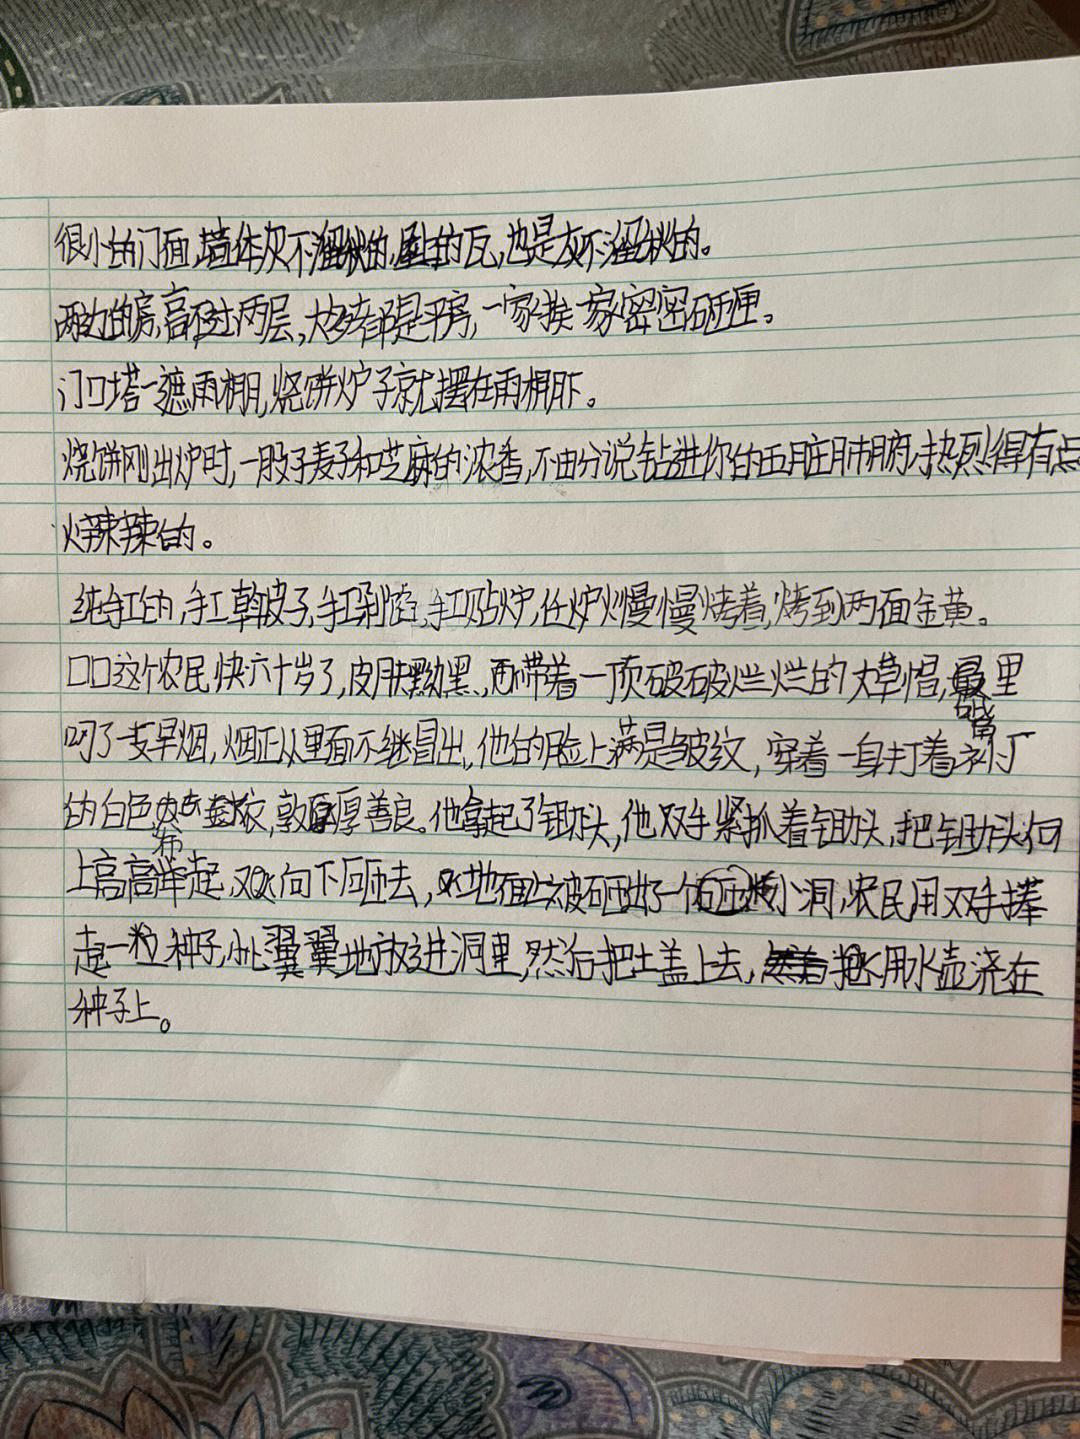 很小的门面,墙体灰不溜秋的,屋上的瓦,也是灰不溜秋的。
两边的房,高不过两层,大多都是平房,一家挨一家密密砸匝。
门口塔一遮雨棚,烧饼炉子就摆在雨棚下。
烧饼刚出炉时,一股子麦子和芝麻的浓香,不由分说钻进你的五脏肺腑,热烈得有点
火辣辣的。
纯手工的,手工擀皮子,手工剁馅,手工贴炉,任炉火慢慢烤着,烤到两面金黄。
口口这个农民快六十岁了,皮肤黝黑,带着一顶破破烂烂的大草帽,嘴里
叼了一支旱烟,烟正从里面不继冒出,他的脸上满是皱纹,穿着一身打着补丁
的白色布衣,敦厚善良。他拿起了锄头,他双手紧抓着锄头,把锄头向
上高高举起,又向下砸去,地面上被砸出了一个小洞,农民用双手捧
起一粒种子,小心翼翼地放进洞里,然后把土盖上去,用水壶浇在
种子上。